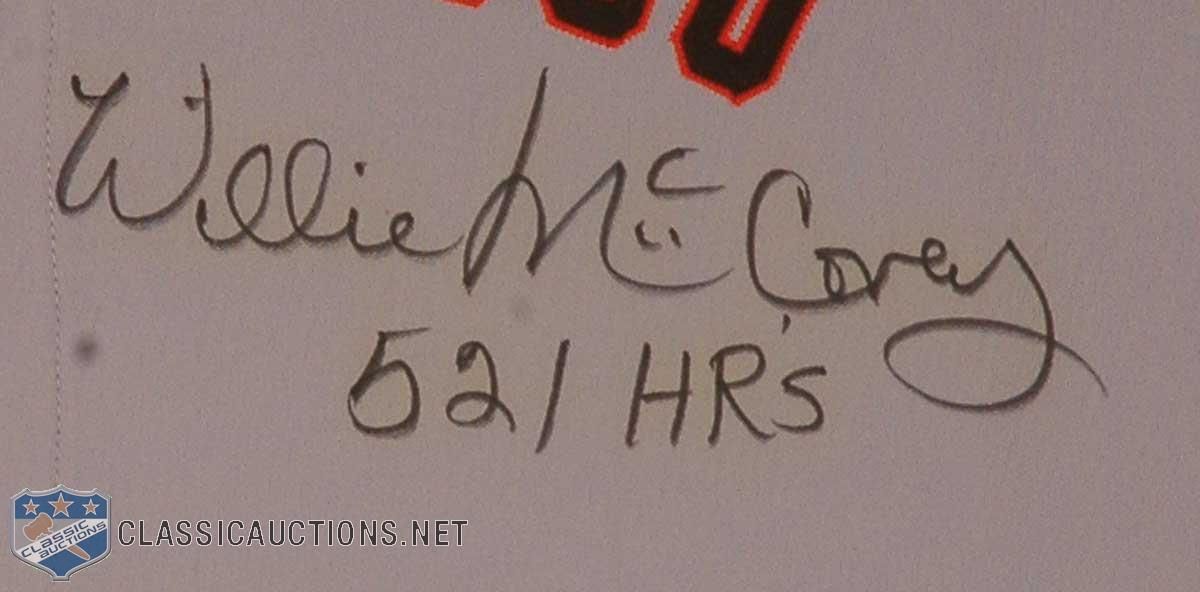 Willie McCovey
521 HR's
CLASSIC AUCTIONS
CLASSICAUCTIONS.NET